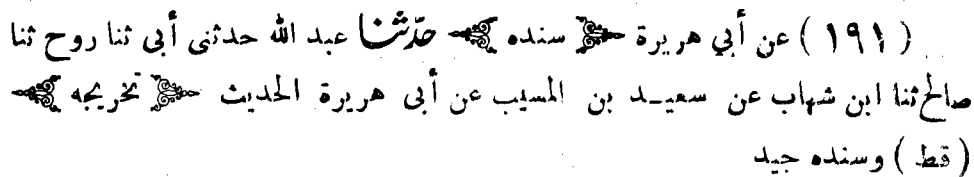 ( ١٩١ ) عن أبي هريرة ﴿ سنده ﴾ حدّثنا عبد الله حدثنى أبى ثنا روح ثنا
صالح ثنا ابن شهاب عن سعيـد بن المسيب عن أبى هريرة الحديث ﴿ تخريجه ﴾
( قط ) وسنده جيد